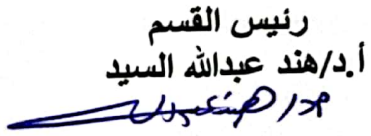 رئيس القسم
أ.د/هند عبدالله السيد